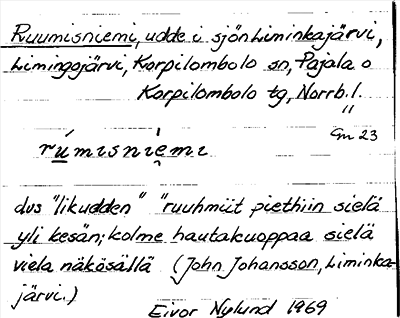 Ruumisniemi, udde i sjön Liminkajärvi,
Limingojärvi, Korpilombolo sn, Pajala o
Korpilombolo tg, Norrb. l.
"
Gm 23
rúmisniemi
dvs "likudden" "ruuhmiit piethiin sielä
yli kesän; kolme hautakuoppaa sielä
vielä näkösällä (John Johansson, Liminka-
järvi.)
Eivor Nylund 1969